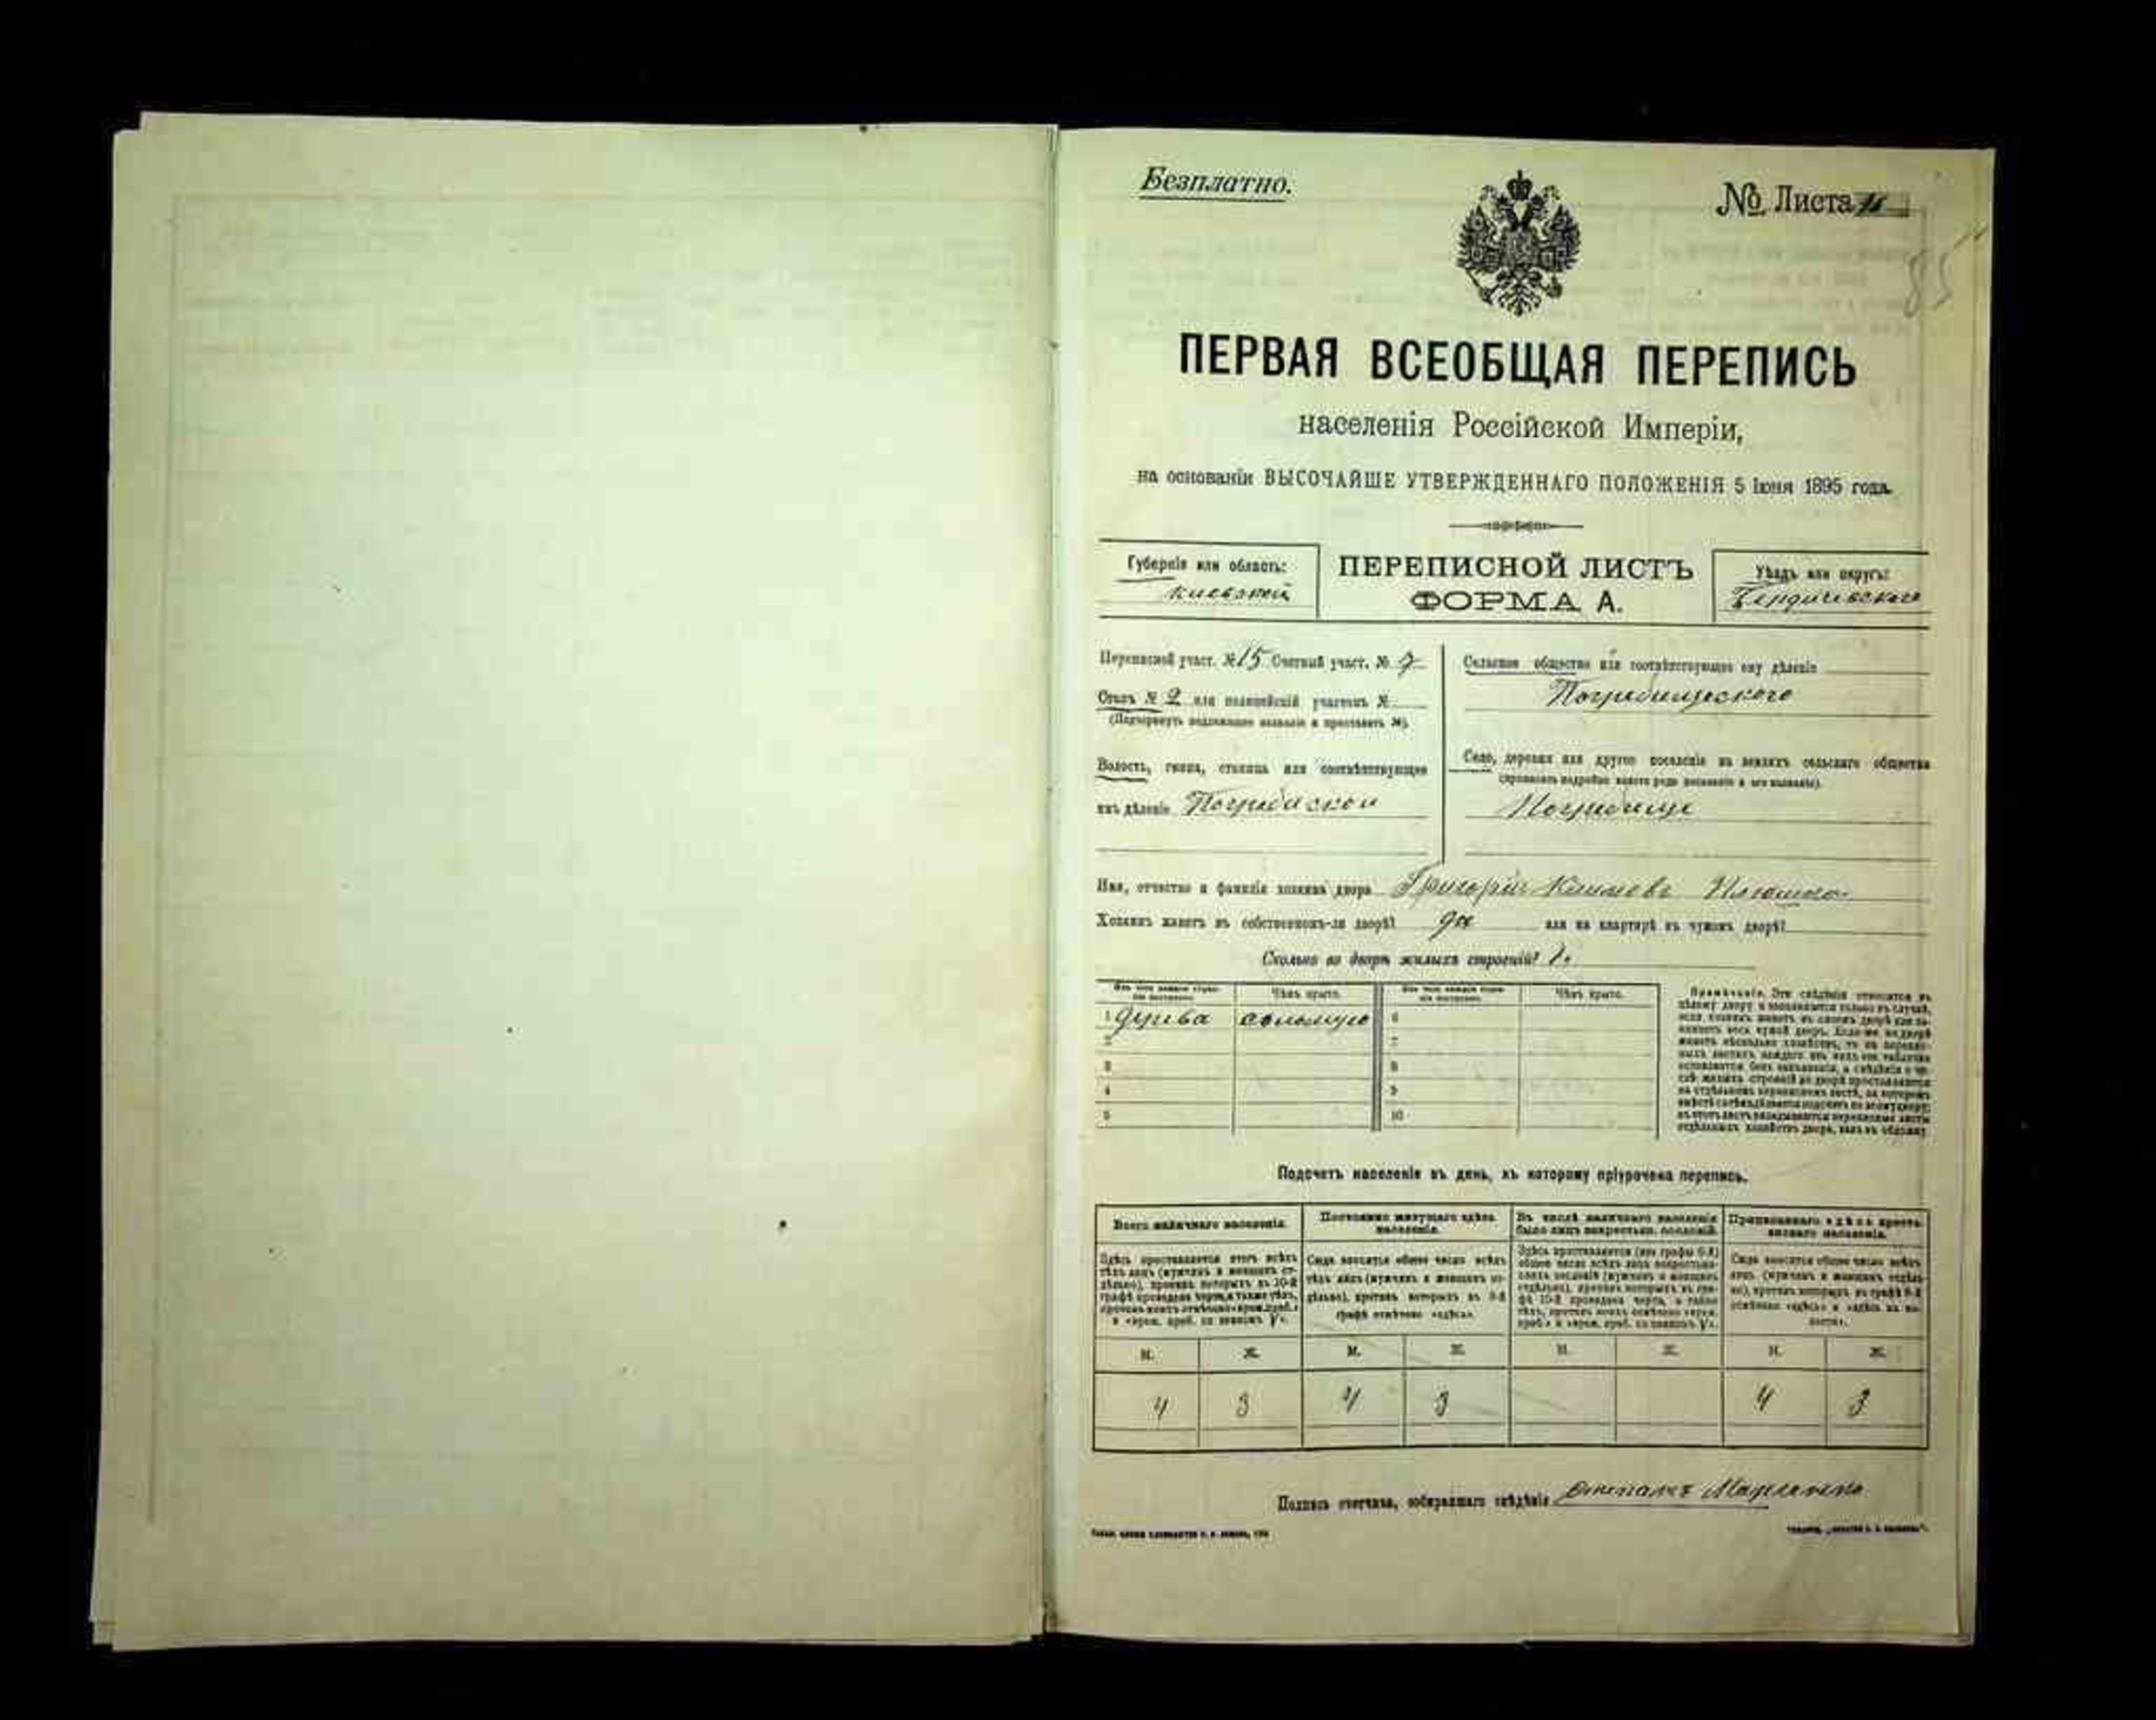 Безплатно.
№ Листа
85
ПЕРВАЯ ВСЕОБЩАЯ ПЕРЕПИСЬ
населенія Россійской Имперіи,
на основаніи ВЫСОЧАЙШЕ УТВЕРЖДЕННАГО ПОЛОЖЕНІЯ 5 Іюня 1895 года.
Губернія или область:
Киевской
ПЕРЕПИСНОЙ ЛИСТЪ
ФОРМА А.
Уѣздъ или округъ:
Бердичевскаго
Переписной участ. № 15 Счетный участ. № 7
Станъ № 2 или полицейскій участокъ №
(Подчеркнуть надлежащее названіе и проставить №).
Волость, гмина, станица или соотвѣтствующее
имъ дѣленіе Погребиской
Сельское общество или соотвѣтствующее ему дѣленіе
Погребищеского
Село, деревня или другое поселеніе на земляхъ сельскаго общества
(прописать подробно какого рода поселеніе и его названіе).
Погребище
Имя, отчество и фамилія хозяина двора Григорій Климовъ
Хозяинъ живетъ въ собственномъ-ли дворѣ? да или на квартирѣ въ чужомъ дворѣ?
Сколько во дворѣ жилыхъ строеній? 1.
Изъ чего каждое строеніе построено. Чѣмъ крыто. Изъ чего каждое строеніе построено. Чѣмъ крыто.
1 соломую 6
2 7
3 8
4 9
5 10
Примѣчаніе. Эти свѣдѣнія относятся къ
цѣлому двору и заполняются только въ случаѣ,
если хозяинъ живетъ въ своемъ дворѣ или за-
нимаетъ весь чужой дворъ. Если-же во дворѣ
живетъ нѣсколько хозяйствъ, то въ перепис-
ныхъ листахъ каждаго изъ нихъ эта табличка
оставляется безъ заполненія, а свѣдѣнія о чи-
слѣ жилыхъ строеній во дворѣ проставляются
на отдѣльномъ переписномъ листѣ, на которомъ
вмѣстѣ съ тѣмъ дѣлается подсчетъ по всему двору;
въ этотъ листъ вкладываются переписные листы
отдѣльныхъ хозяйствъ двора, какъ въ обложку.
Подсчетъ населенія въ день, къ которому пріурочена перепись.
Всего наличнаго населенія.
Здѣсь проставляется итогъ всѣхъ
тѣхъ лицъ (мужчинъ и женщинъ от-
дѣльно), противъ которыхъ въ 10-й
графѣ проведена черта, а также тѣхъ,
противъ коихъ отмѣчено «врем. преб.»
и «врем. преб. со знакомъ V».
Постоянно живущаго здѣсь
населенія.
Сюда вносится общее число всѣхъ
тѣхъ лицъ (мужчинъ и женщинъ от-
дѣльно), противъ которыхъ въ 9-й
графѣ отмѣчено «здѣсь».
Въ числѣ наличнаго населенія
было лицъ некрестьян. сословій.
Здѣсь проставляется (изъ графы 6-й)
общее число всѣхъ лицъ некрестьян-
скихъ сословій (мужчинъ и женщинъ
отдѣльно), противъ которыхъ въ гра-
фѣ 10-й проведена черта, а также
тѣхъ, противъ коихъ отмѣчено «врем.
преб.» и «врем. преб. со знакомъ V».
Приписаннаго здѣсь кресть-
янскаго населенія.
Сюда вносится общее число всѣхъ
лицъ (мужчинъ и женщинъ отдѣль-
но), противъ которыхъ въ графѣ 8-й
отмѣчено «здѣсь» и «здѣсь въ во-
лости».
М. Ж. М. Ж. М. Ж. М. Ж.
4 3 4 3 4 3
Подпись счетчика, собиравшаго свѣдѣнія